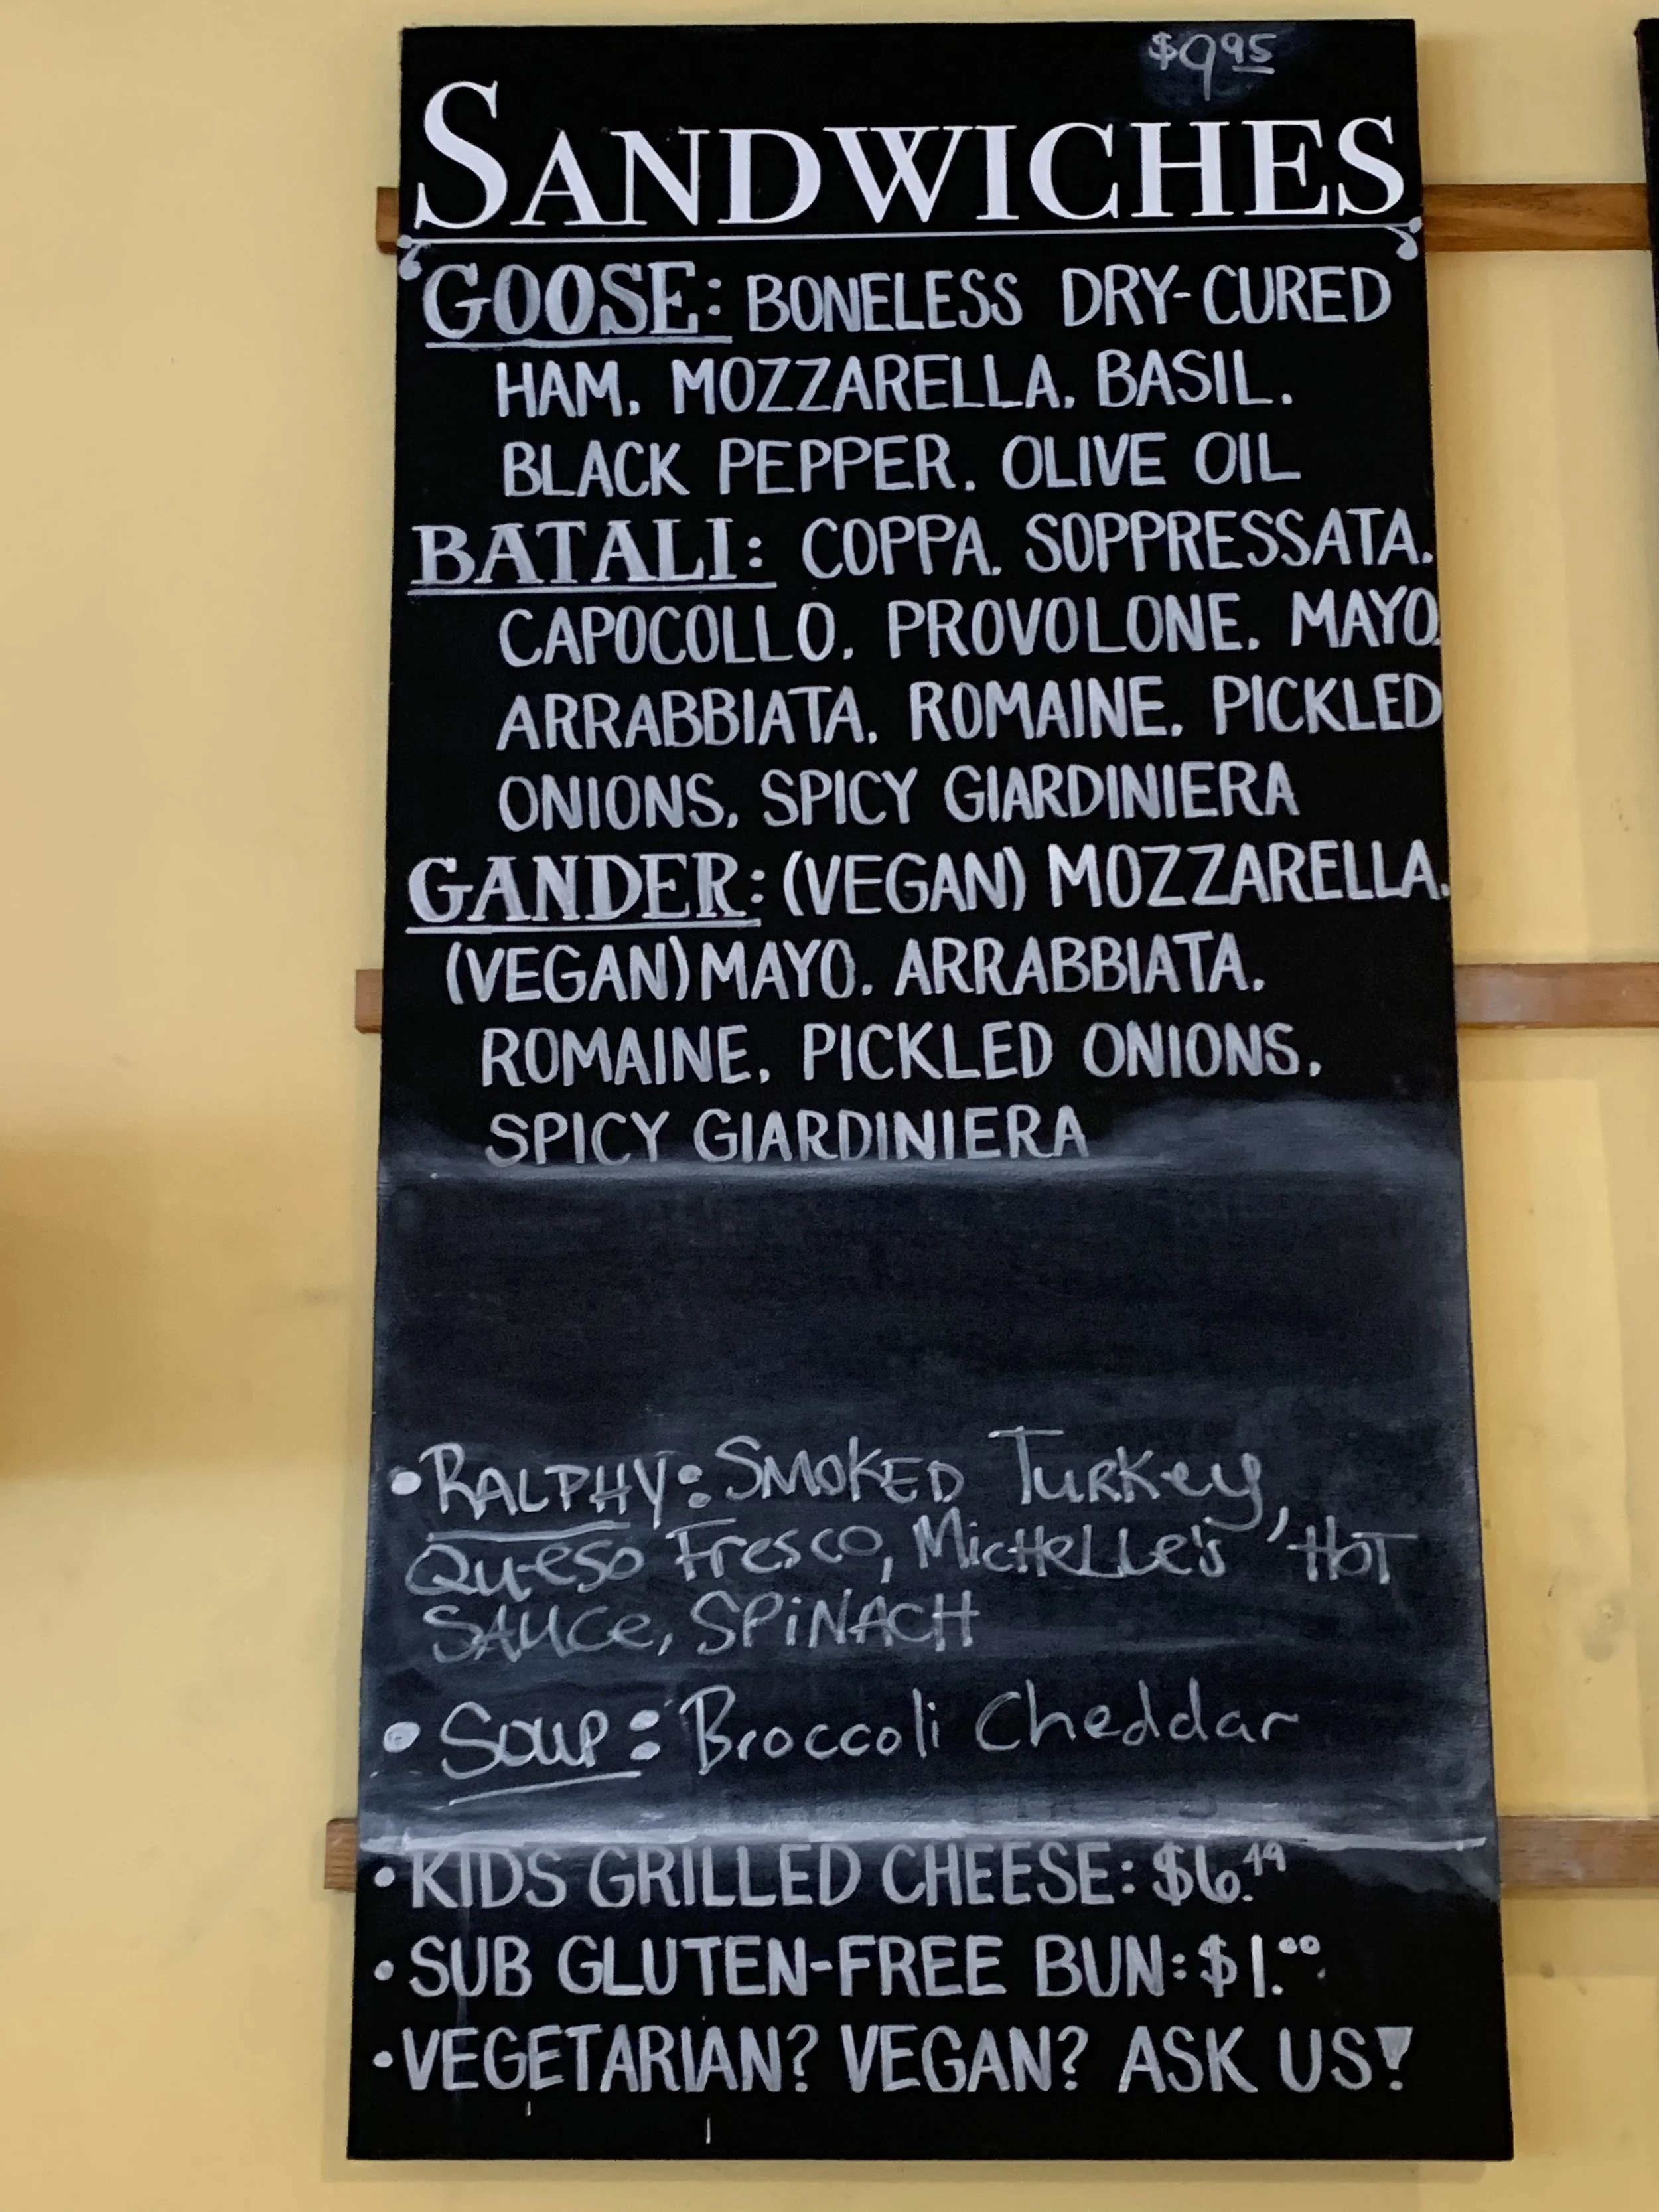 $9 95
SANDWICHES
GOOSE: BONELESS DRY-CURED
HAM, MOZZARELLA, BASIL,
BLACK PEPPER, OLIVE OIL
BATALI: COPPA, SOPPRESSATA,
CAPOCOLLO, PROVOLONE, MAYO,
ARRABBIATA, ROMAINE, PICKLED
ONIONS, SPICY GIARDINIERA
GANDER: (VEGAN) MOZZARELLA,
(VEGAN) MAYO, ARRABBIATA,
ROMAINE, PICKLED ONIONS,
SPICY GIARDINIERA
• RALPHY: SMOKED TURKey,
Queso Fresco, MicHeLLe's HOT
SAUCe, SPiNACH
• Soup: Broccoli Cheddar
• KIDS GRILLED CHEESE: $6.49
• SUB GLUTEN-FREE BUN: $1.00
• VEGETARIAN? VEGAN? ASK US!